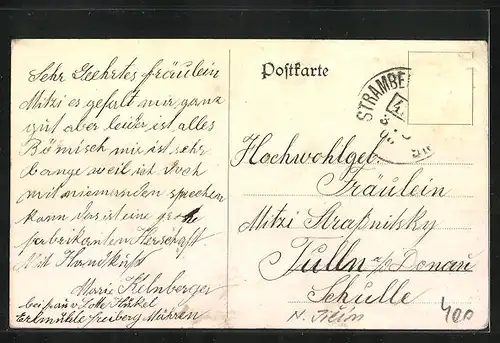 Sehr Geehrtes fräulein
Mitzi es gefalt mir ganz
gut aber leider ist alles
Bömisch mir ist sehr
bange weil ich doch
mit niemanden sprechen
kann das ist eine große
fabrikanten Herschaft
Mit Handkuß
Marie Kelnberger
bei
Erlmühle freiberg Mähren
Postkarte
STRAMBE
Hochwohlgeb.
Fräulein
Mitzi Straßnitsky
Tulln a/d Donau
Schulle
400